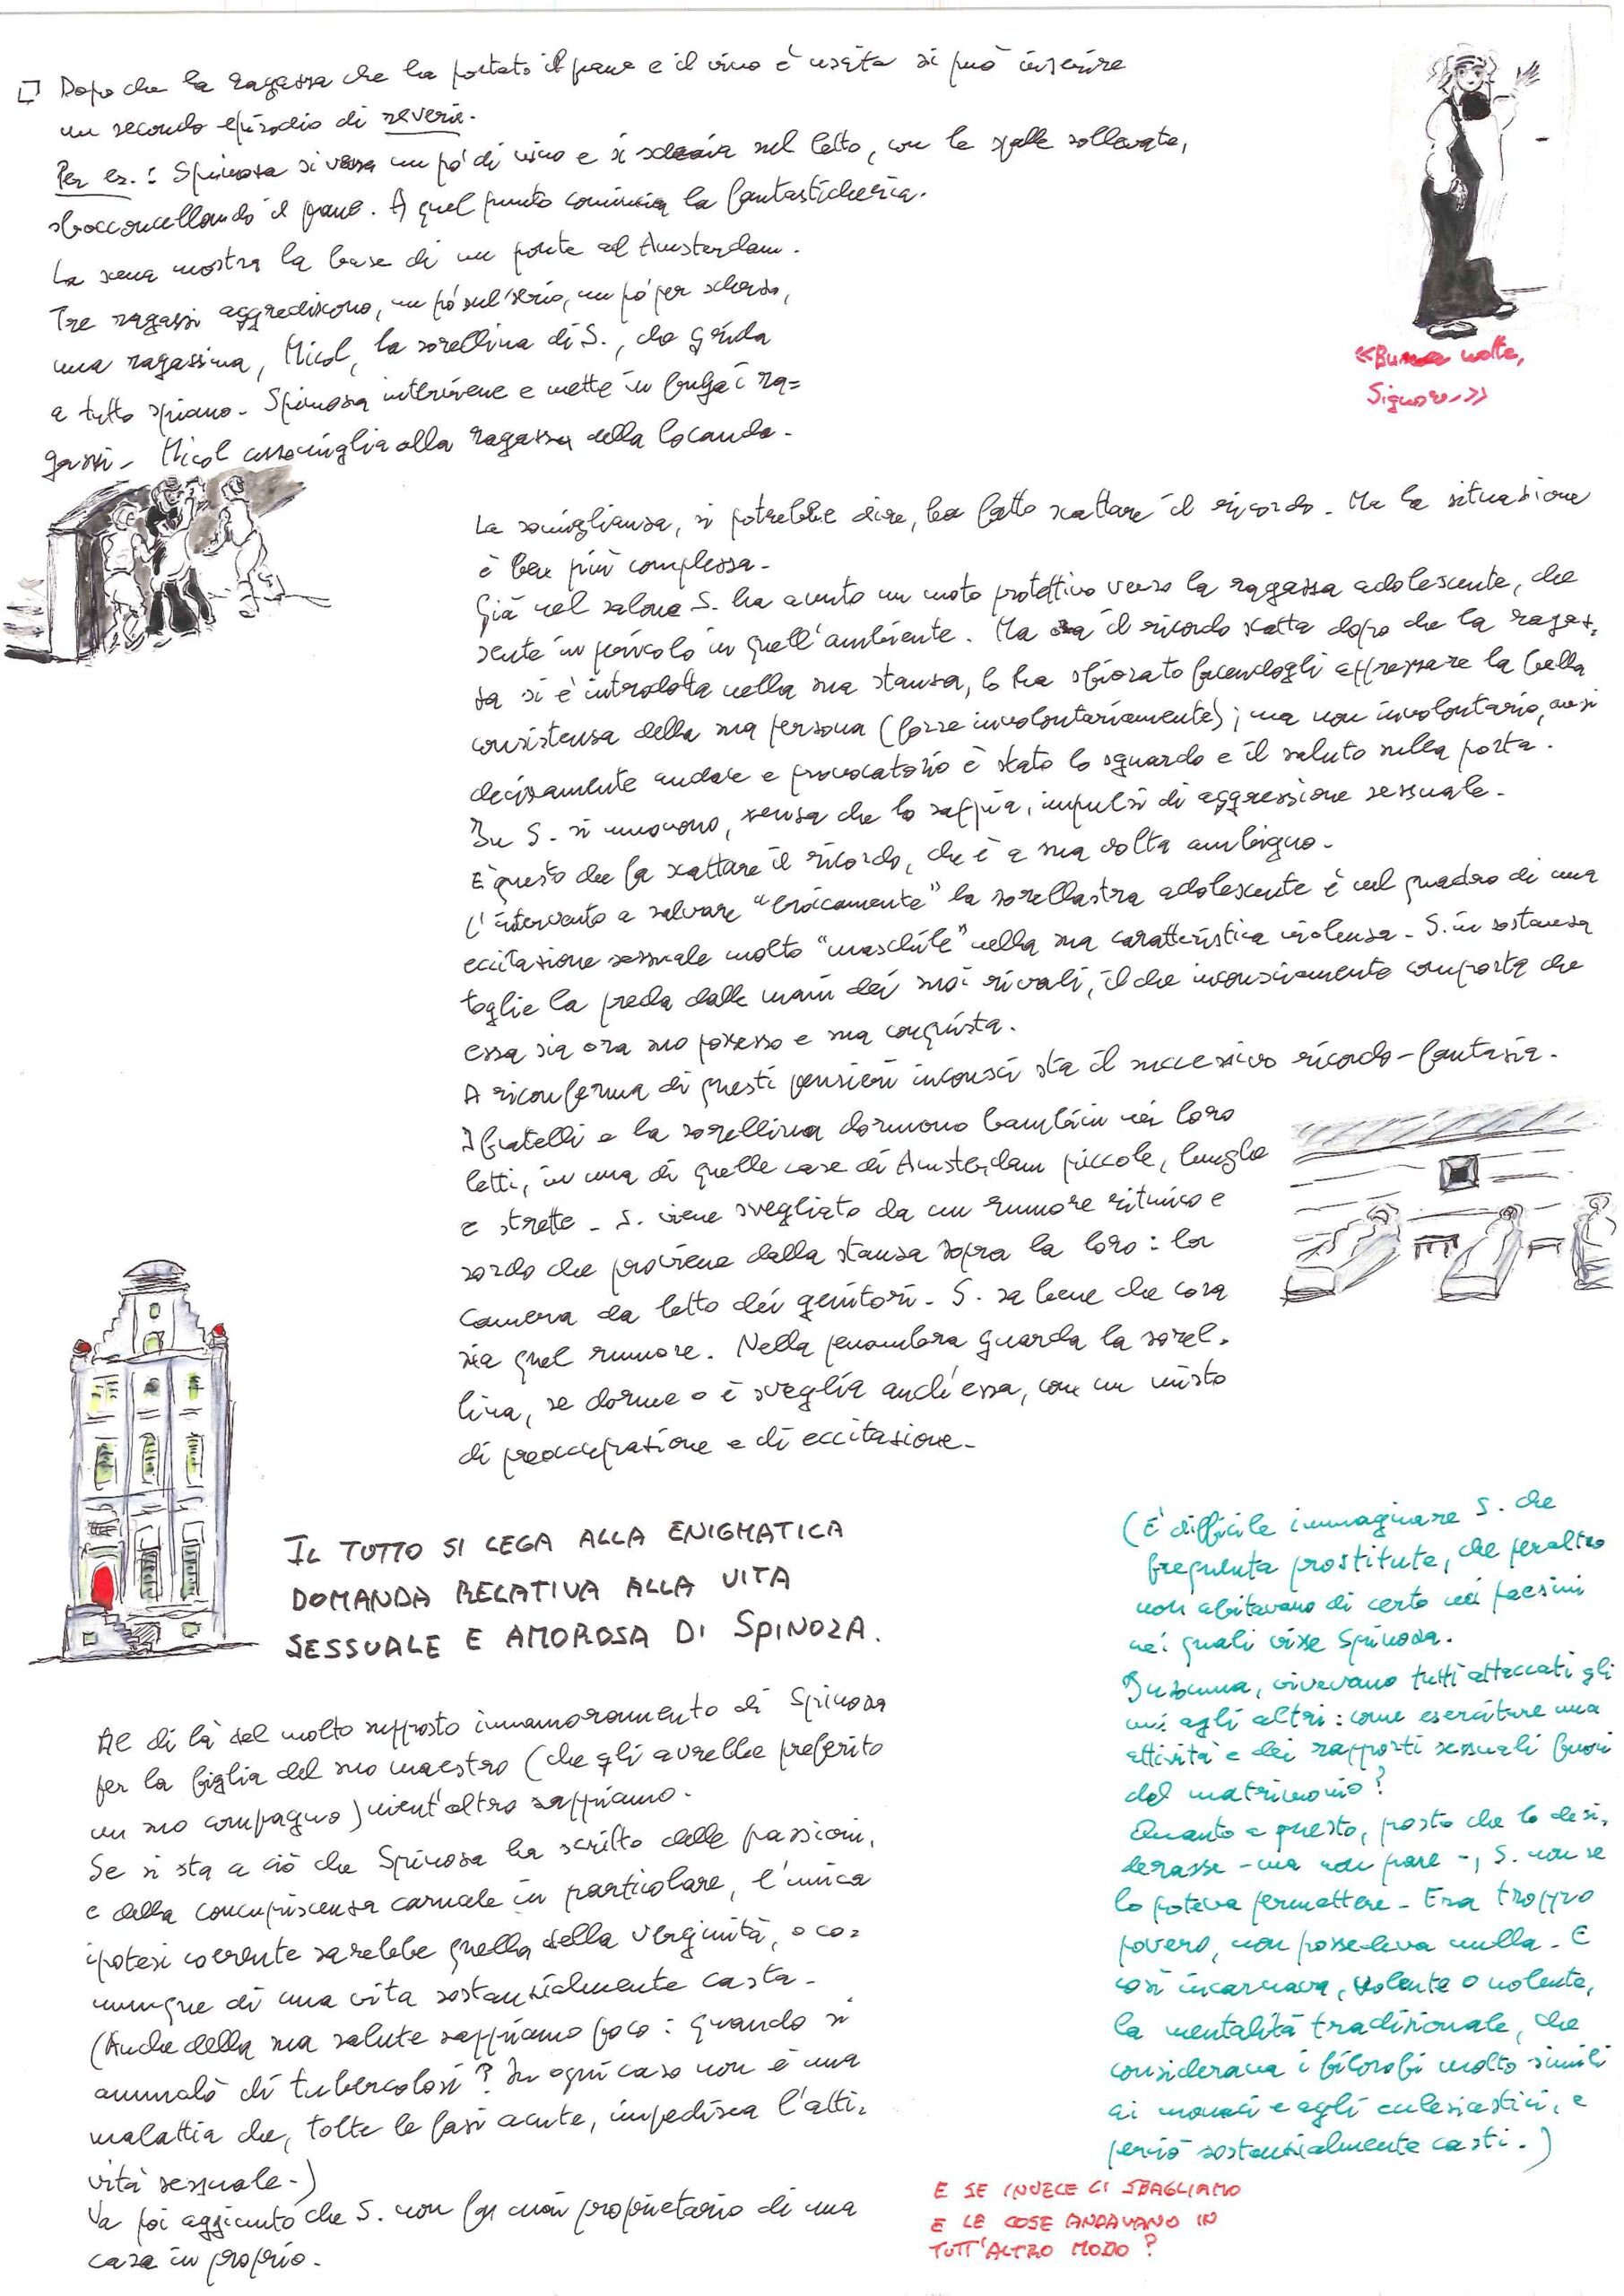 Dopo che la ragazza che ha portato il pane e il vino è uscita si può inserire
un secondo episodio di reverie.
Per es.: Spinoza si versa un pò di vino e si sdraia sul letto, con le spalle sollevate,
sbocconcellando il pane. A quel punto comincia la fantasticheria.
La scena mostra la base di un ponte ad Amsterdam.
Tre ragazzi aggrediscono, un pò sul serio, un pò per scherzo,
una ragazzina, Micol, la sorellina di S., che grida
a tutto spiano. Spinoza interviene e mette in fuga i ra=
gazzi. Micol assomiglia alla ragazza della locanda.
«Buona notte,
Signore.»
La somiglianza, si potrebbe dire, ha fatto scattare il ricordo. Ma la situazione
è ben più complessa.
Già nel salone S. ha avuto un moto protettivo verso la ragazza adolescente, che
sente in pericolo in quell'ambiente. Ma ora il ricordo scatta dopo che la ragaz=
za si è introdotta nella sua stanza, lo ha sfiorato facendogli apprezzare la bella
consistenza della sua persona (forse involontariamente); ma non involontario, anzi
decisamente audace e provocatorio è stato lo sguardo e il saluto sulla porta.
In S. si muovono, senza che lo sappia, impulsi di aggressione sessuale.
È questo che fa scattare il ricordo, che è a sua volta ambiguo.
L'intervento a salvare "eroicamente" la sorellastra adolescente è nel quadro di una
eccitazione sessuale molto "maschile" nella sua caratteristica violenza. S. in sostanza
toglie la preda dalle mani dei suoi rivali, il che inconsciamente comporta che
essa sia ora suo possesso e sua conquista.
A riconferma di questi pensieri inconsci sta il successivo ricordo-fantasia.
I fratelli e la sorellina dormono bambini nei loro
letti, in una di quelle case di Amsterdam piccole, lunghe
e strette. S. viene svegliato da un rumore ritmico e
sordo che proviene dalla stanza sopra la loro: la
camera da letto dei genitori. S. sa bene che cosa
sia quel rumore. Nella penombra guarda la sorel=
lina, se dorme o è sveglia anch'essa, con un misto
di preoccupazione e di eccitazione.
IL TUTTO SI LEGA ALLA ENIGMATICA
DOMANDA RELATIVA ALLA VITA
SESSUALE E AMOROSA DI SPINOZA.
Al di là del molto supposto innamoramento di Spinoza
per la figlia del suo maestro (che gli avrebbe preferito
un suo compagno) nient'altro sappiamo.
Se si sta a ciò che Spinoza ha scritto delle passioni,
e della concupiscenza carnale in particolare, l'unica
ipotesi coerente sarebbe quella della verginità, o co=
munque di una vita sostanzialmente casta.
(Anche della sua salute sappiamo poco: quando si
ammalò di tubercolosi? In ogni caso non è una
malattia che, tolte le fasi acute, impedisca l'atti=
vità sessuale.)
Va poi aggiunto che S. non fu mai proprietario di una
casa in proprio.
(È difficile immaginare S. che
frequenta prostitute, che peraltro
non abitavano di certo nei paesini
nei quali visse Spinoza.
Insomma, vivevano tutti attaccati gli
uni agli altri: come esercitare una
attività e dei rapporti sessuali fuori
del matrimonio?
Quanto a questo, posto che lo desi=
derasse - ma non pare -, S. non se
lo poteva permettere. Era troppo
povero, non possedeva nulla. E
così incarnava, volente o nolente,
la mentalità tradizionale, che
considerava i filosofi molto simili
ai monaci e agli ecclesiastici, e
perciò sostanzialmente casti.)
E SE INVECE CI SBAGLIAMO
E LE COSE ANDAVANO IN
TUTT'ALTRO MODO?